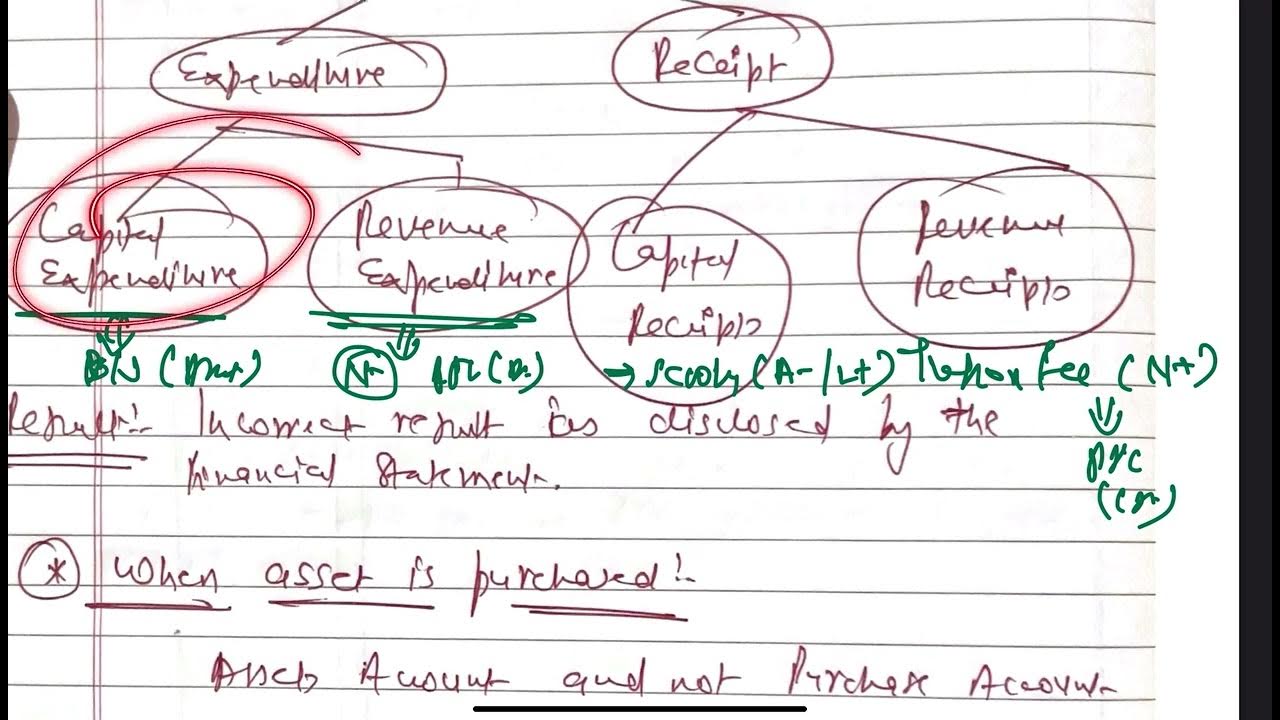 Expenditure
Receipt
Capital Expenditure
Revenue Expenditure
Capital Receipts
Revenue Receipts
B/S
P/L (Dr.)
(A-/L+)
Fee (N+)
Result:- Incorrect result is disclosed by the
financial Statement.
(Cr.)
* When asset is purchased:-
Assets Account and not Purchase Account